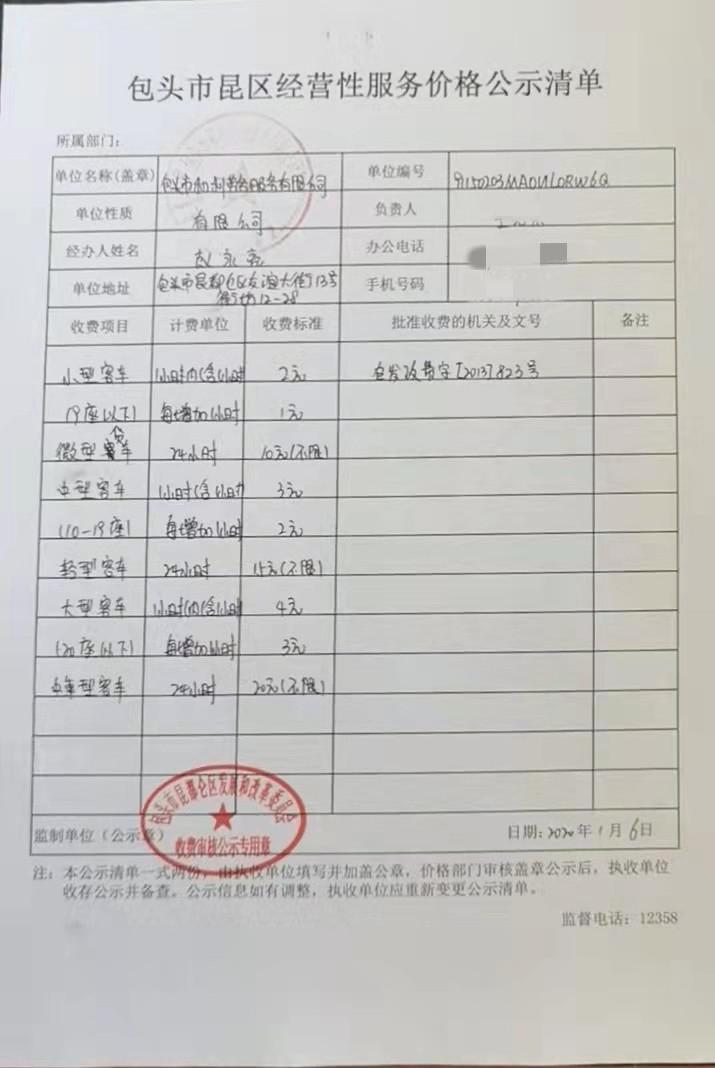 包头市昆区经营性服务价格公示清单
所属部门：
单位名称(盖章) 包头市 服务有限公司 单位编号
单位性质 有限公司 负责人
经办人姓名 赵永亮 办公电话
单位地址 包头市昆都仑区友谊大街13号 手机号码
街坊12-28
收费项目 计费单位 收费标准 批准收费的机关及文号 备注
小型客车 1小时内(含1小时) 2元 包发改费字[2013]823号
(9座以下) 每增加1小时 1元
微型货车 24小时 10元(不限)
中型客车 1小时(含1小时) 3元
(10-19座) 每增加1小时 2元
轻型客车 24小时 15元(不限)
大型客车 1小时内(含1小时) 4元
(20座以下) 每增加1小时 3元
型客车 24小时 20元(不限)
包头市昆都仑区发展和改革委员会
收费审核公示专用章
监制单位（公示章） 日期：2020年1月6日
注：本公示清单一式两份，由执收单位填写并加盖公章，价格部门审核盖章公示后，执收单位
收存公示并备查。公示信息如有调整，执收单位应重新变更公示清单。
监督电话：12358